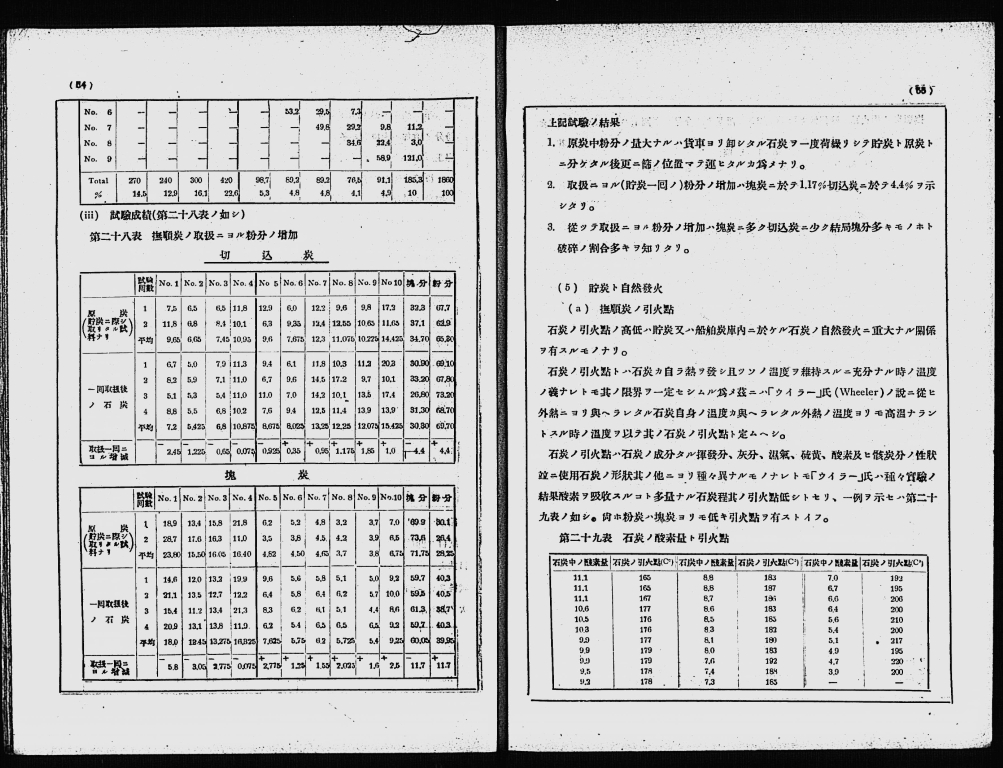 (54)
No. 6 — — — — — 53,2 29,5 7,3 — — —
No. 7 — — — — — — 49,8 29,2 9,8 11,2 —
No. 8 — — — — — — — 34,6 22,4 3,0 —
No. 9 — — — — — — — — 58,9 121,0 —
Total 270 240 300 420 98,7 89,2 89,2 76,5 91,1 185,3 1860
% 14,5 12,9 16,1 22,6 5,3 4,8 4,8 4,1 4,9 10 100
(iii) 試驗成績(第二十八表ノ如シ)
第二十八表 撫順炭ノ取扱ニヨル粉分ノ增加
切込炭
試驗回數 No. 1 No. 2 No. 3 No. 4 No. 5 No. 6 No. 7 No. 8 No. 9 No 10 塊分 粉分
原炭(貯炭ニ際シ取リタル試料ナリ)
1 7,5 6,5 6,5 11,8 12,9 6,0 12,2 9,6 9,8 17,2 32,3 67,7
2 11,8 6,8 8,4 10,1 6,3 9,35 12,4 12,55 10,65 11,65 37,1 62,9
平均 9,65 6,65 7,45 10,95 9,6 7,675 12,3 11,075 10,225 14,425 34,70 65,30
一回取扱後ノ石炭
1 6,7 5,0 7,9 11,3 9,4 6,1 11,8 10,3 11,2 20,3 30,90 69,10
2 8,2 5,9 7,1 11,0 6,7 9,6 14,5 17,2 9,7 10,1 33,20 67,80
3 5,1 5,3 5,4 11,0 11,0 7,0 14,2 10,1 13,5 17,4 26,80 73,20
4 8,8 5,5 6,8 10,2 7,6 9,4 12,5 11,4 13,9 13,9 31,30 68,70
平均 7,2 5,425 6,8 10,875 8,675 8,025 13,25 12,25 12,075 15,425 30,30 69,70
取扱一回ニヨル增減 −2,45 −1,225 −0,65 −0,075 −0,925 +0,35 +0,95 +1,175 +1,85 +1,0 −4,4 +4,4
塊炭
試驗回數 No. 1 No. 2 No. 3 No. 4 No. 5 No. 6 No. 7 No. 8 No. 9 No.10 塊分 粉分
原炭(貯炭ニ際シ取リタル試料ナリ)
1 18,9 13,4 15,8 21,8 6,2 5,2 4,8 3,2 3,7 7,0 69,9 30,1
2 28,7 17,6 16,3 11,0 3,5 3,8 4,5 4,2 3,9 6,5 73,6 26,4
平均 23,80 15,50 16,05 16,40 4,82 4,50 4,65 3,7 3,8 6,75 71,75 28,25
一回取扱後ノ石炭
1 14,6 12,0 13,2 19,9 9,6 5,6 5,8 5,1 5,0 9,2 59,7 40,3
2 21,1 13,5 12,7 12,2 6,4 5,8 6,4 6,2 5,7 10,0 59,5 40,5
3 15,4 11,2 13,4 21,3 8,3 6,2 6,1 5,1 4,4 8,6 61,3 38,7
4 20,9 13,1 13,8 11,9 6,2 5,4 6,5 6,5 6,5 9,2 59,7 40,3
平均 18,0 12,45 13,275 16,325 7,625 5,75 6,2 5,725 5,4 9,25 60,05 39,95
取扱一回ニヨル增減 −5,8 −3,05 −2,775 −0,075 +2,775 +1,25 +1,55 +2,025 +1,6 +2,5 −11,7 +11,7
(55)
上記試驗ノ結果
1. 原炭中粉分ノ量大ナルハ貨車ヨリ卸シタル石炭ヲ一度荷繰リシテ貯炭ト原炭ト
ニ分ケタル後更ニ篩ノ位置マデ運ビタルカ爲メナリ。
2. 取扱ニヨル(貯炭一回ノ)粉分ノ增加ハ塊炭ニ於テ1.17%切込炭ニ於テ4.4%ヲ示
シタリ。
3. 從ツテ取扱ニヨル粉分ノ增加ハ塊炭ニ多ク切込炭ニ少ク結局塊分多キモノホト
破碎ノ割合多キヲ知リタリ。
(5) 貯炭ト自然發火
(a) 撫順炭ノ引火點
石炭ノ引火點ノ高低ハ貯炭又ハ船舶炭庫内ニ於ケル石炭ノ自然發火ニ重大ナル關係
ヲ有スルモノナリ。
石炭ノ引火點トハ石炭カ自ラ熱ヲ發シ且ツソノ溫度ヲ維持スルニ充分ナル時ノ溫度
ノ義ナレトモ其ノ限界ヲ一定セシムル爲メ茲ニハ「ウイラー」氏(Wheeler)ノ說ニ從ヒ
外熱ニヨリ與ヘラレタル石炭自身ノ溫度カ與ヘラレタル外熱ノ溫度ヨリモ高溫ナラン
トスル時ノ溫度ヲ以テ其ノ石炭ノ引火點ト定ムヘシ。
石炭ノ引火點ハ石炭ノ成分タル揮發分、灰分、濕氣、硫黃、酸素及ヒ骸炭分ノ性狀
竝ニ使用石炭ノ形狀其ノ他ニヨリ種々異ナルモノナレトモ「ウイラー」氏ハ種々實驗ノ
結果酸素ヲ吸收スルコト多量ナル石炭程其ノ引火點低シトセリ、一例ヲ示セハ第二十
九表ノ如シ。尙ホ粉炭ハ塊炭ヨリモ低キ引火點ヲ有ストイフ。
第二十九表 石炭ノ酸素量ト引火點
石炭中ノ酸素量 石炭ノ引火點(C°) 石炭中ノ酸素量 石炭ノ引火點(C°) 石炭中ノ酸素量 石炭ノ引火點(C°)
11.1 165 8,8 183 7,0 192
11.1 165 8,8 187 6,7 195
11.1 167 8,7 186 6,6 206
10,6 177 8,6 183 6,4 200
10,5 176 8,5 185 5,6 210
10,3 176 8,3 182 5,4 200
9,9 177 8,1 180 5,1 217
9,9 179 8,0 183 4,9 195
9,9 179 7,6 192 4,7 220
9,5 178 7,4 188 3,9 200
9,2 178 7,3 185 — —